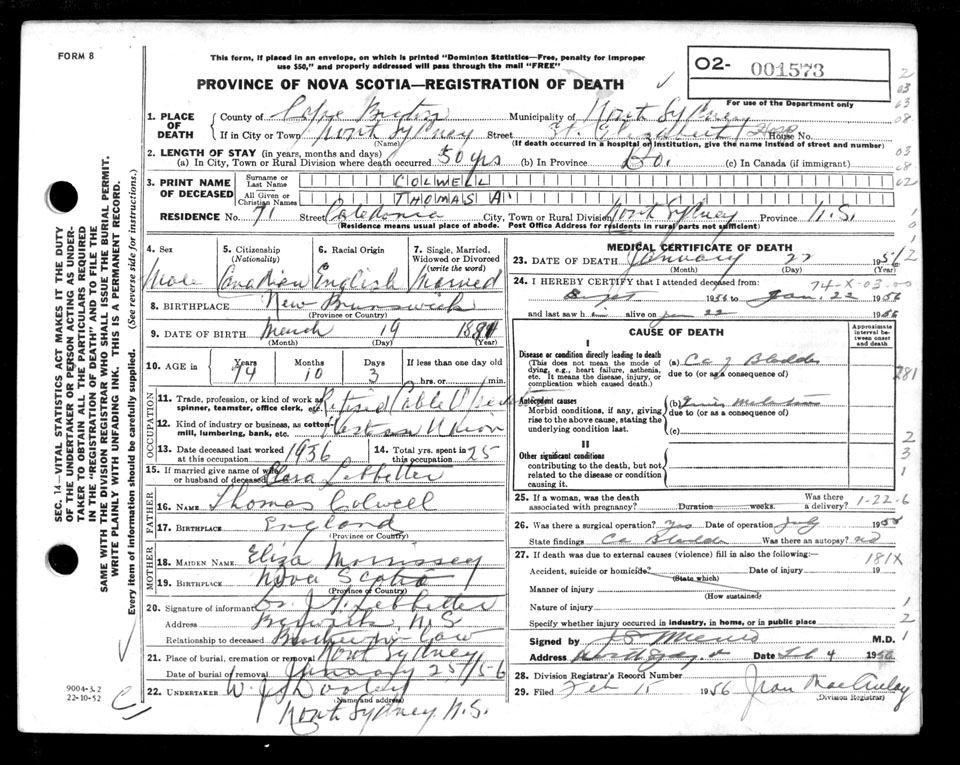 FORM 8
This form, if placed in an envelope, on which is printed "Dominion Statistics—Free, penalty for improper
use $50," and properly addressed will pass through the mail "FREE"
PROVINCE OF NOVA SCOTIA—REGISTRATION OF DEATH
O2- 001573
For use of the Department only
1. PLACE OF DEATH County of Cape Breton Municipality of North Sydney
If in City or Town North Sydney Street St. Elizabeth Hosp House No.
(Name) (If death occurred in a hospital or institution, give the name instead of street and number)
2. LENGTH OF STAY (in years, months and days)
(a) In City, Town or Rural Division where death occurred 50 yrs (b) In Province Do. (c) In Canada (if immigrant)
3. PRINT NAME OF DECEASED Surname or Last Name COLWELL
All Given or Christian Names THOMAS A
RESIDENCE No. 71 Street Caledonia City, Town or Rural Division North Sydney Province N.S.
(Residence means usual place of abode. Post Office Address for residents in rural parts not sufficient)
4. Sex 5. Citizenship (Nationality) 6. Racial Origin 7. Single, Married, Widowed or Divorced (write the word)
Male Canadian English Married
8. BIRTHPLACE New Brunswick
(Province or Country)
9. DATE OF BIRTH March 19 1881
(Month) (Day) (Year)
10. AGE in Years 74 Months 10 Days 3 If less than one day old
hrs. or min.
OCCUPATION
11. Trade, profession, or kind of work as spinner, teamster, office clerk, etc. Retired Cable Operator
12. Kind of industry or business, as cotton-mill, lumbering, bank, etc. Western Union
13. Date deceased last worked at this occupation 1936 14. Total yrs. spent in this occupation 25
15. If married give name of wife or husband of deceased Clara Lebbetter
FATHER
16. NAME Thomas Colwell
17. BIRTHPLACE England
(Province or Country)
MOTHER
18. MAIDEN NAME Eliza Morrissey
19. BIRTHPLACE Nova Scotia
(Province or Country)
20. Signature of informant J. Lebbetter
Address Berwick N.S
Relationship to deceased Brother in-law
21. Place of burial, cremation or removal North Sydney
Date of burial or removal January 25/56
22. UNDERTAKER W. J. Dooley
(Name and address)
North Sydney N.S.
MEDICAL CERTIFICATE OF DEATH
23. DATE OF DEATH January 22 1956
(Month) (Day) (Year)
24. I HEREBY CERTIFY that I attended deceased from: 74-X-03-00
1956 to Jan. 22 1956
and last saw him alive on Jan 22 1956
CAUSE OF DEATH
Approximate interval between onset and death
I
Disease or condition directly leading to death
(This does not mean the mode of dying, e.g., heart failure, asthenia, etc. It means the disease, injury, or complication which caused death.)
(a) Ca of Bladder
due to (or as a consequence of)
181
Antecedent causes
Morbid conditions, if any, giving rise to the above cause, stating the underlying condition last.
(b)
due to (or as a consequence of)
(c)
II
Other significant conditions
contributing to the death, but not related to the disease or condition causing it.
25. If a woman, was the death associated with pregnancy? Duration weeks. Was there a delivery? 1-22-6
26. Was there a surgical operation? Yes Date of operation July 195
State findings Ca Bladder Was there an autopsy? no
27. If death was due to external causes (violence) fill in also the following:— 181X
Accident, suicide or homicide? Date of injury 19
(State which)
Manner of injury
(How sustained)
Nature of injury
Specify whether injury occurred in industry, in home, or in public place
Signed by M.D.
Address Date Feb 4 1956
28. Division Registrar's Record Number
29. Filed Feb 15 1956
(Division Registrar)
SEC. 14—VITAL STATISTICS ACT MAKES IT THE DUTY
OF THE UNDERTAKER OR PERSON ACTING AS UNDER-
TAKER TO OBTAIN ALL THE PARTICULARS REQUIRED
IN THE "REGISTRATION OF DEATH" AND TO FILE THE
SAME WITH THE DIVISION REGISTRAR WHO SHALL ISSUE THE BURIAL PERMIT.
WRITE PLAINLY WITH UNFADING INK. THIS IS A PERMANENT RECORD.
Every item of information should be carefully supplied. (See reverse side for instructions.)
9004-3.2
22-10-52